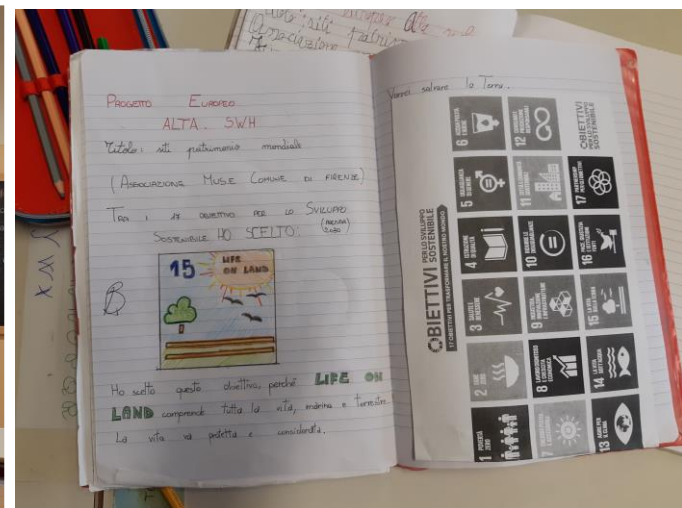 PROGETTO EUROPEO
ALTA. SWH
Titolo: siti patrimonio mondiale
(ASSOCIAZIONE MUS.E COMUNE DI FIRENZE)
OBIETTIVO PER LO SVILUPPO (AGENDA 2030)
SOSTENIBILE HO SCELTO:
15 LIFE ON LAND
Ho scelto questo obiettivo, perché LIFE ON
LAND comprende tutta la vita, marina e terrestre.
La vita va protetta e considerata.
Vorrei salvare la Terra.
OBIETTIVI PER LO SVILUPPO SOSTENIBILE
17 OBIETTIVI PER TRASFORMARE IL NOSTRO MONDO
1 POVERTÀ ZERO
2 FAME ZERO
3 SALUTE E BENESSERE
4 ISTRUZIONE DI QUALITÀ
5 UGUAGLIANZA DI GENERE
6
7
8 LAVORO DIGNITOSO E CRESCITA ECONOMICA
9
10 RIDURRE LE DISUGUAGLIANZE
11
12 CONSUMO E PRODUZIONE RESPONSABILI
13 AGIRE PER IL CLIMA
14 LA VITA SOTT'ACQUA
15 LA VITA SULLA TERRA
16
17 PARTNERSHIP PER GLI OBIETTIVI
OBIETTIVI PER LO SVILUPPO SOSTENIBILE